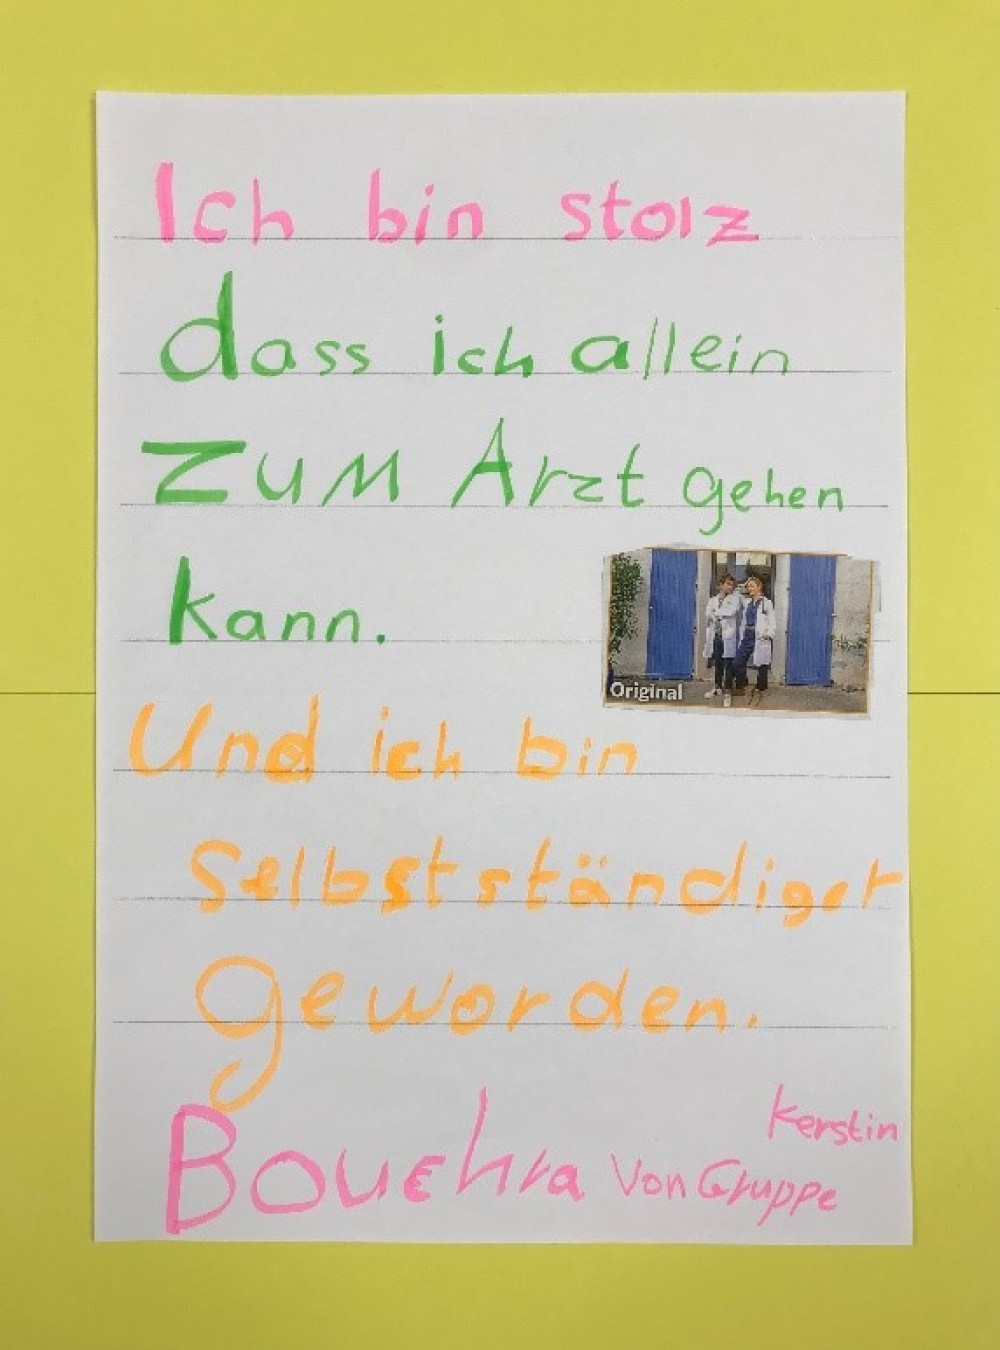 Ich bin stolz
dass ich allein
zum Arzt gehen
kann.
Original
Und ich bin
Selbstständiger
geworden.
Bouchra von Gruppe
Kerstin